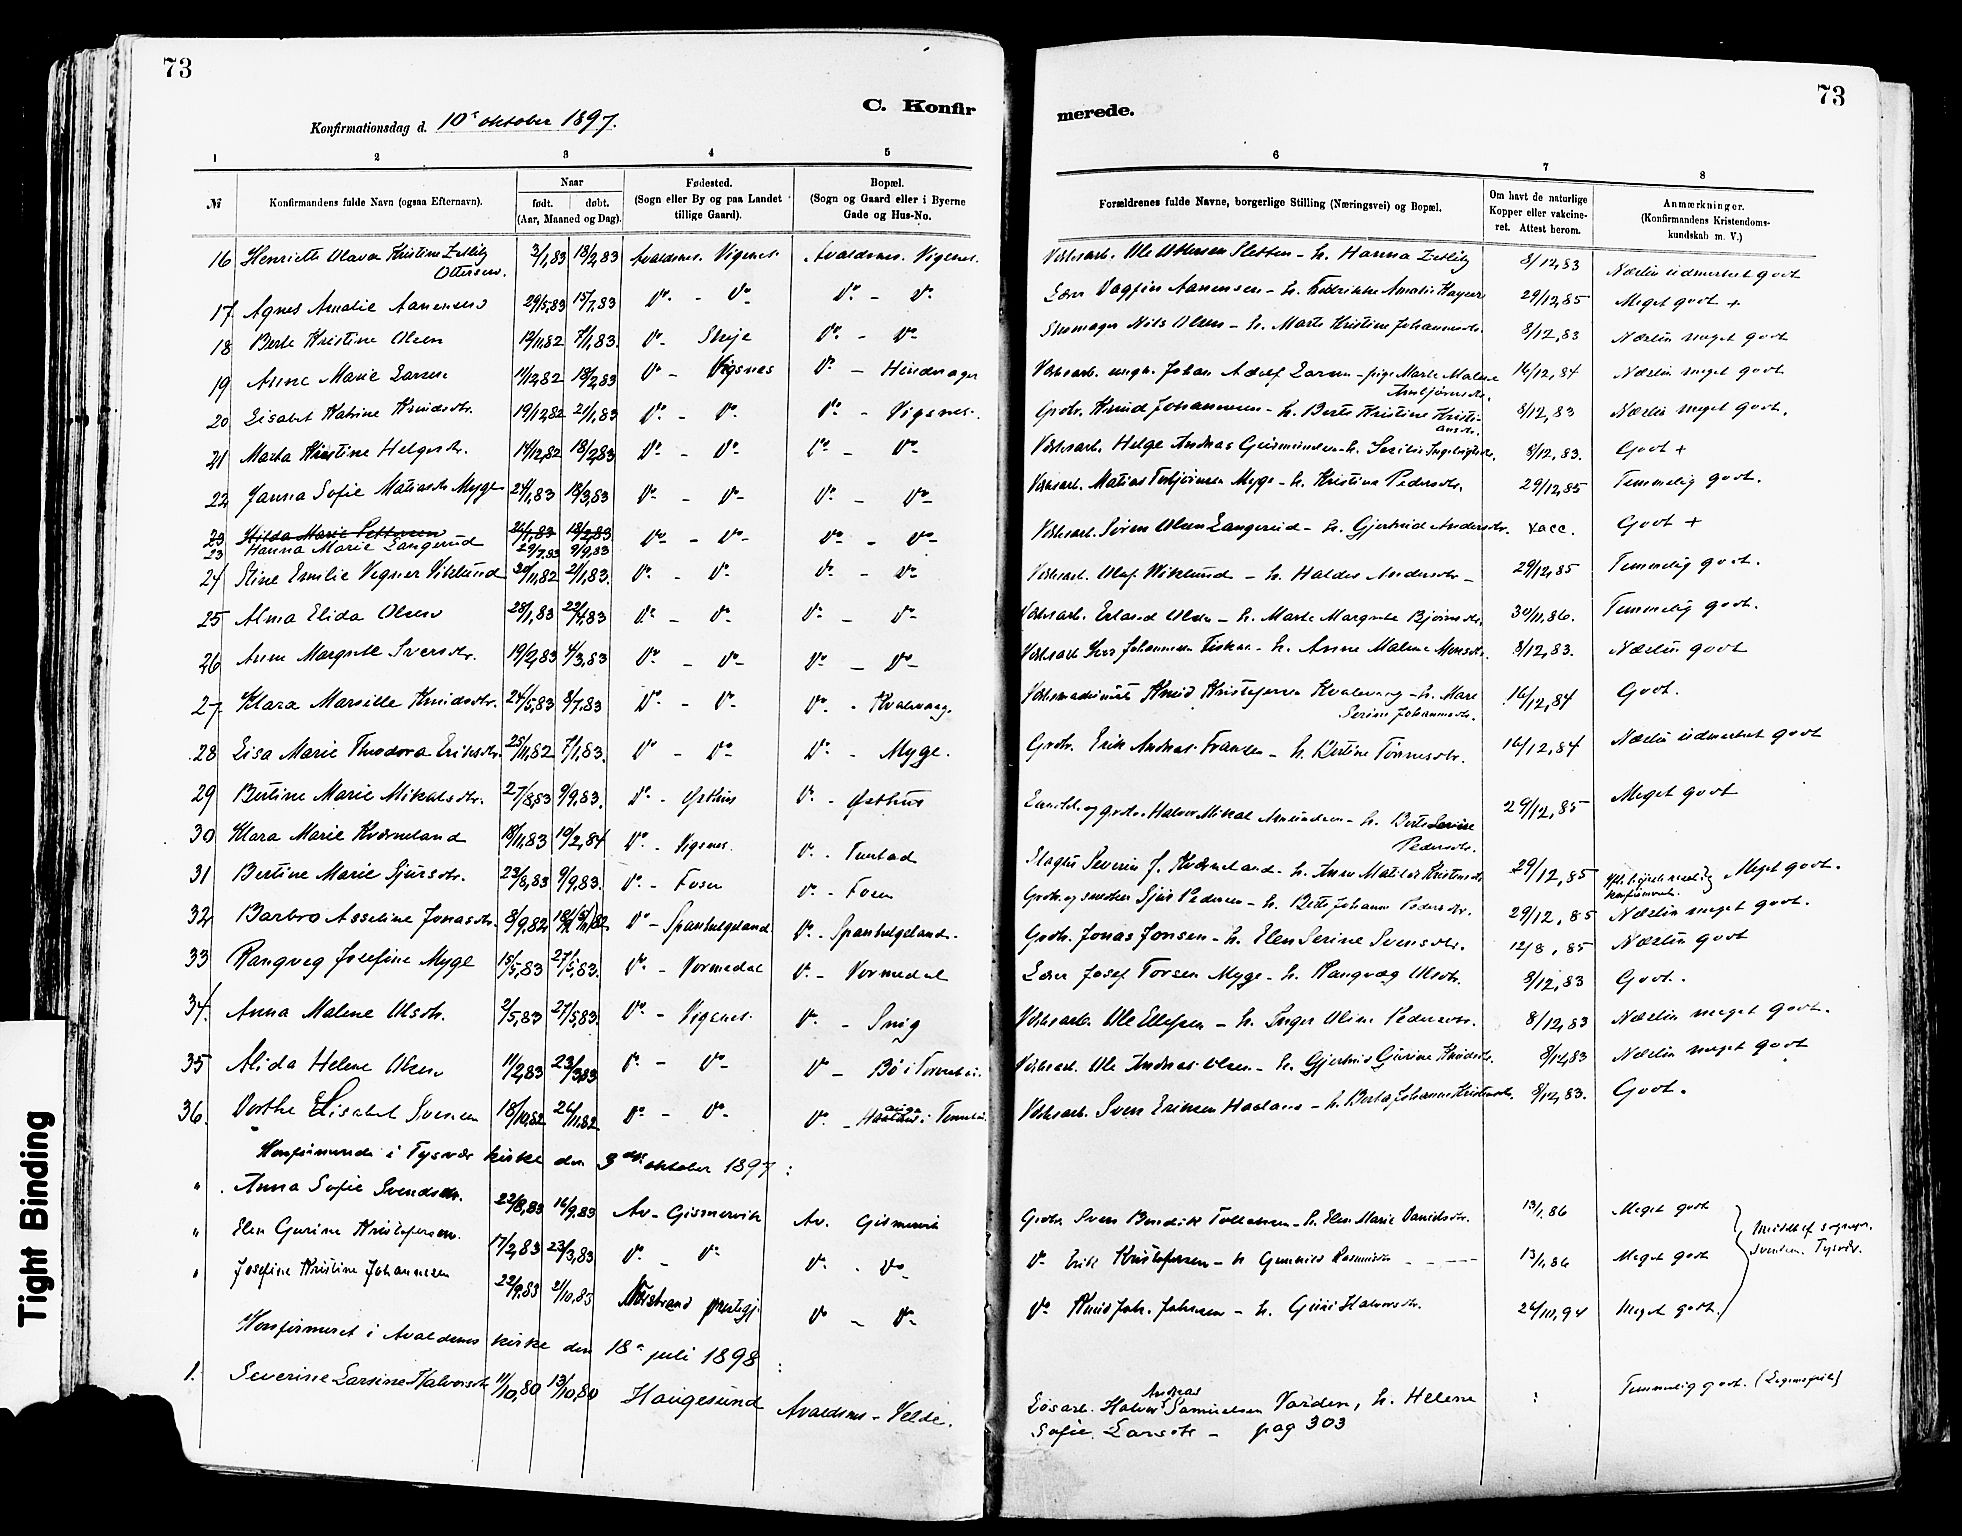 73
73
C. Konfir
merede.
Konfirmationsdag d. 10de oktober 1897.
1 2 3 4 5 6 7 8
№
Konfirmandens fulde Navn (ogsaa Efternavn).
Naar
født. døbt.
(Aar, Maaned og Dag).
Fødested.
(Sogn eller By og paa Landet
tillige Gaard).
Bopæl.
(Sogn og Gaard eller i Byerne
Gade og Hus-No.
Forældrenes fulde Navne, borgerlige Stilling (Næringsvei) og Bopæl.
Om havt de naturlige
Kopper eller vakcine-
ret. Attest herom.
Anmærkninger.
(Konfirmandens Kristendoms-
kundskab m. V.)
16 Henriette Olava Kristine Zetlitz 3/1,83 18/2,83 Avaldsnes. Vigsnes. Avaldsnes. Vigsnes. Verksarb. Ole Ottersen Sletten - h. Hanna Zetlitz 8/12,83 Næsten udmerket godt
Ottersen.
17 Agnes Amalie Aanensen 29/5,83 15/7,83 Do. - Do. Do. - Do. Lærer Dagfin Aanensen - h. Fredrikke Amalie 29/12,85 Meget godt +
18 Berte Kristine Olsen 19/11,82 7/1,83. Do - Do - Do Skomager Nils Olsen - h. Marte Kristine Johannesdtr. 8/12,83 Næsten meget godt
19 Anne Marie Larsen 11/12,82 18/2,83 Do - Vigsnes Do - Verksarb. ungk. Johan Adolf Larsen - pige Marte Malene 16/12,84 Næsten meget godt
20 Lisabet Katrine Knudsdtr. 19/12,82 21/1,83 Do. - Do. Do - Vigsnes. Grdbr. Knud Johannesen - h. Berte Kristine Kristi- 8/12,83 Næsten meget godt.
ansdtr.
21 Marta Kristine Helgesdtr. 14/12,82 18/2,83 Do - Do Do - Do Verksarb. Helge Andreas Geismundsen - h. 8/12,83. Godt +
22 Janna Sofie Matiasdtr Myge 24/1,83 18/3,83 Do - Do Do - Do Verksarb. Matias Torbjørnsen Myge - h. Kristine Pedersdtr. 29/12,85 Temmelig godt.
23 Hilda Marie Pettersen 26/1,83 18/2,83
23 Hanna Marie Langerud 29/7,83 9/9,83 Do - Do Do - Do Verksarb. Søren Olsen Langerud - h. Gjertrud Andersdtr. vacc. Godt +
24 Stine Emilie Vegner Viklund 30/11,82 21/1,83. Do - Do Do - Do Verksarb. Olaf Wiklund - h. Haldis Andersdtr - 29/12,85 Temmelig godt.
25 Alma Elida Olsen 28/1,83 22/4,83 Do - Do Do - Do Verksarb. Erland Olsen - h. Marte Margrete Bjørnsdtr. 30/11,86. Temmelig godt.
26 Anne Margrete Sversdtr. 19/2,83 4/3,83 Do - Do Do - Do Verksarb Johannesen Fiskaa - h. Anne Malene Monsdtr. 8/12,83. Næsten godt
27 Klara Marselle Knudsdtr. 24/5,83 8/7,83 Do - Do Do - Kvalevaag. Knud Kristofersen Kvalevaag - h. Mari 16/12,84 Godt.
Serine Johannesdtr.
28 Lisa Marie Theodora Eriksdtr. 25/11,82 7/1,83. Do - Do Do - Myge. Grdbr. Erik Andreas Fransen - h. Kirstine Tønnesdtr. 16/12,84 Næsten udmerket godt
29 Bertine Marie Mikalsdtr. 27/8,83 9/9,83. Do - Østhus Do - Østhus og grdbr. Halvor Mikal Amundsen - h. Berte Serine 29/12,85 Meget godt
Pedersdtr.
30 Klara Marie Kværneland 18/11,83 10/2,84 Do - Vigsnes. Do - Tuastad Slagter Severin J. Kværneland - h. Anne Matilde Kristensdtr 29/12,85 Meget godt.
31 Bertine Marie Sjursdtr. 23/8,83 9/9,83. Do - Fosen Do - Fosen Grdbr. og smed Sjur Pedersen - h. Berte Johanne Pedersdtr. 29/12,85 Næsten meget godt.
32 Barbro Asseline Jonasdtr. 8/9,82 Do - Spanhelgeland Do - Spanhelgeland. Grdbr. Jonas Jonsen - h. Elen Serine Svensdtr. 12/8,85 Næsten godt
33 Rangveg Josefine Myge 15/5,83 27/5,83. Do - Vormedal Do - Vormedal Lærer Josef Torsen Myge - h. Rangvæg Olsdtr. 8/12,83 Godt.
34 Anna Malene Olsdtr. 2/5,83 27/5,83. Do - Vigsnes. Do - Snig Verksarb. Ole Ellefsen - h. Inger Oline Pedersdtr. 8/12,83 Næsten meget godt.
35 Alida Helene Olsen 11/2,83 23/3,83 Do - Do Do - Bø i Torvestad. Verksarb. Ole Andreas Olsen - h. Gjertrud Gurine Knudsdtr. 8/12,83 Næsten meget godt
36. Dorthe Elisabet Svensen 18/10,82 26/11,82 Do - Do Do - Verksarb. Sven Eriksen Haaland - h. Berta Johanne Kristensdtr. 8/12,83. Godt.
Konfirmerede i Tysvær kirke den 3die oktober 1897:
" Anna Sofie Svendsdtr. 22/8,83 16/9,83 Av - Gismervik Av. Gismervik Grdbr. Sven Bendik Tollaksen - h. Elen Marie Davidsdtr. 13/1,86 Meget godt
" Elen Gurine Kristofersen. 17/2,83 23/3,83 Do - Do Do - Do Do Erik Kristofersen - h Gunhild Rasmusdtr 13/1,86 Meget godt
" Josefine Kristine Johannesen 22/9,83 21/10,83 prestegj. Do - Do Do Knud Joh. Johnsen - h. Guri Halvorsdtr. 24/10,94 Meget godt.
Meddelt af sognepr.
Svendsen, Tysvær.
Konfirmeret i Avaldsnes kirke den 18de juli 1898:
1. Severine Larsine Halvorsdtr 11/10,80 13/10,80 Haugesund Avaldsnes - Velde. Løsarb. Halvor Andreas Samuelsen Varden, h. Helene : Temmelig godt.
Sofie Larsdtr - pag 303
Tight Binding